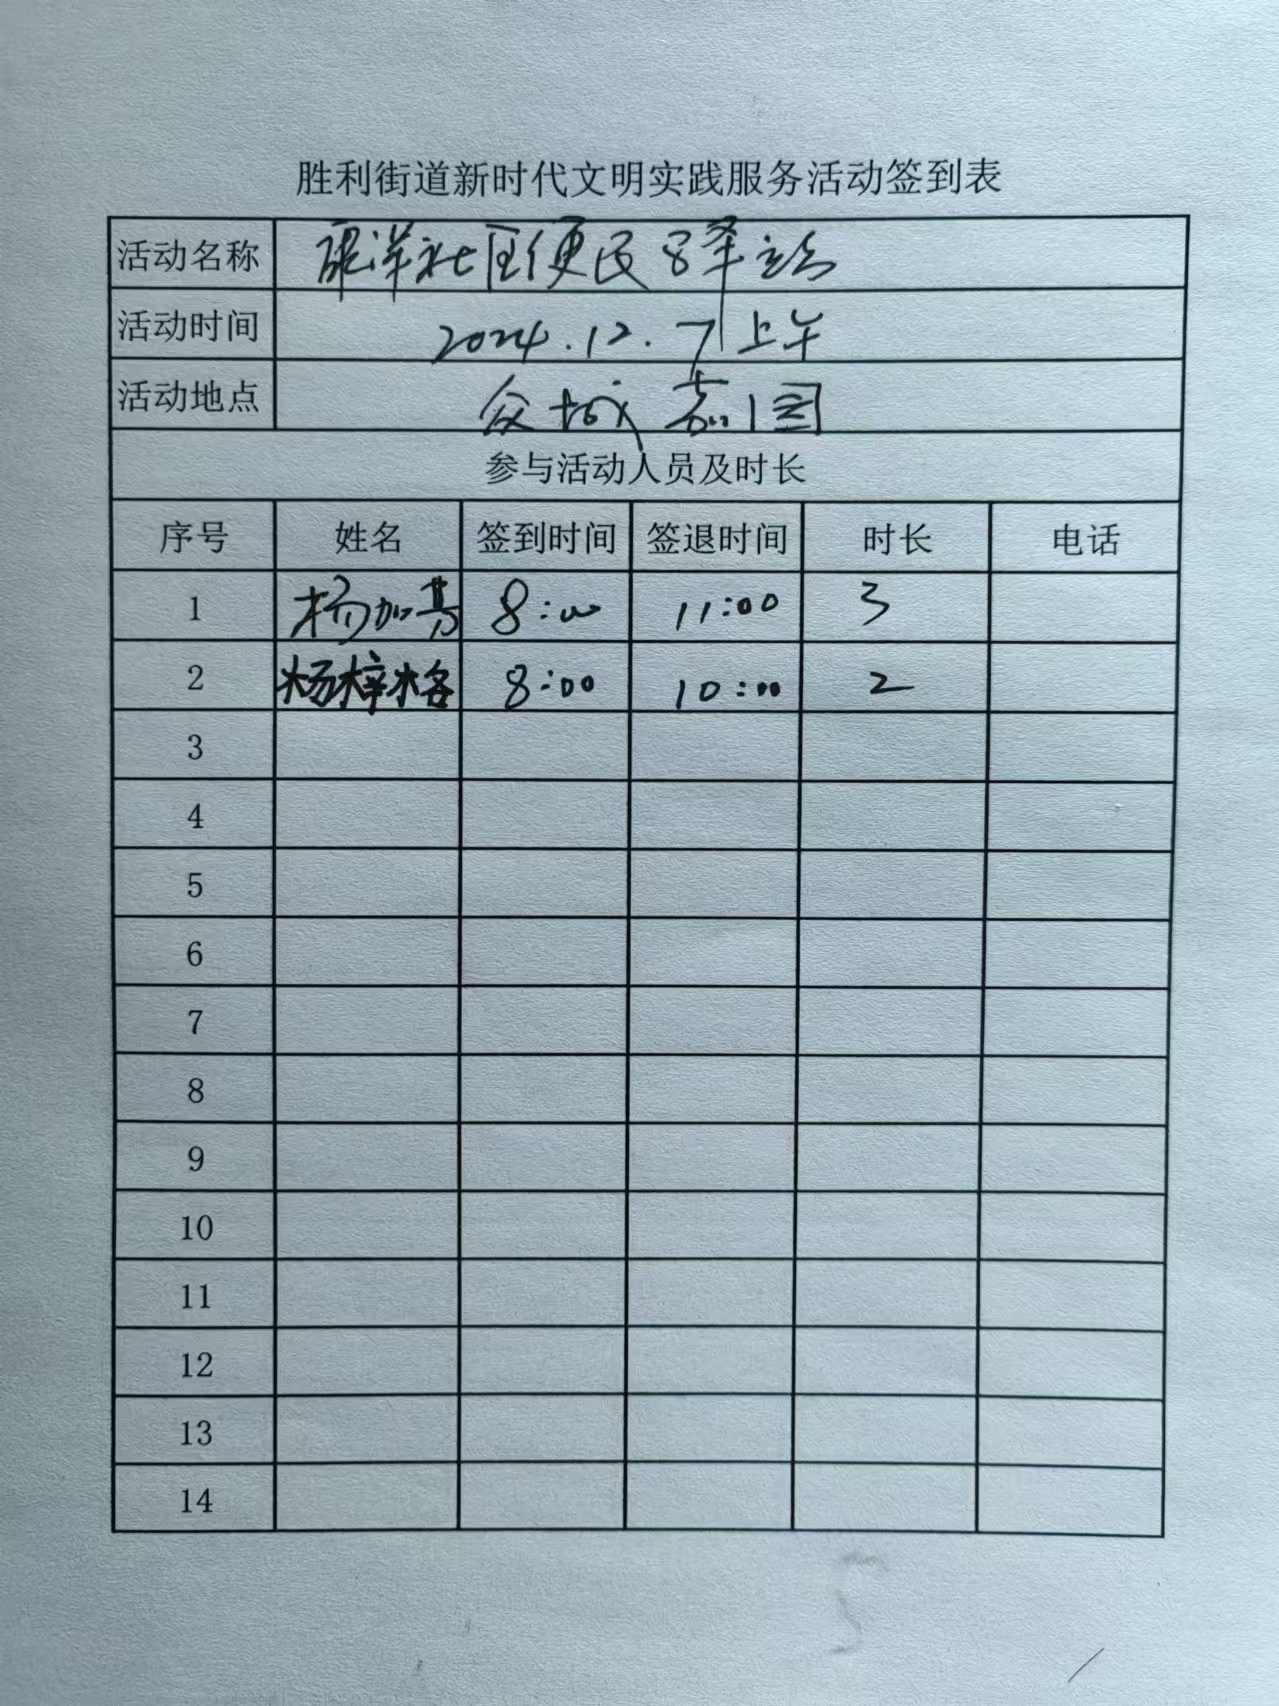 胜利街道新时代文明实践服务活动签到表
活动名称 康洋社区便民驿站
活动时间 2024.12.7上午
活动地点 众城嘉园
参与活动人员及时长
序号 姓名 签到时间 签退时间 时长 电话
1 杨加 8:00 11:00 3
2 杨梓格 8:00 10:00 2
3
4
5
6
7
8
9
10
11
12
13
14